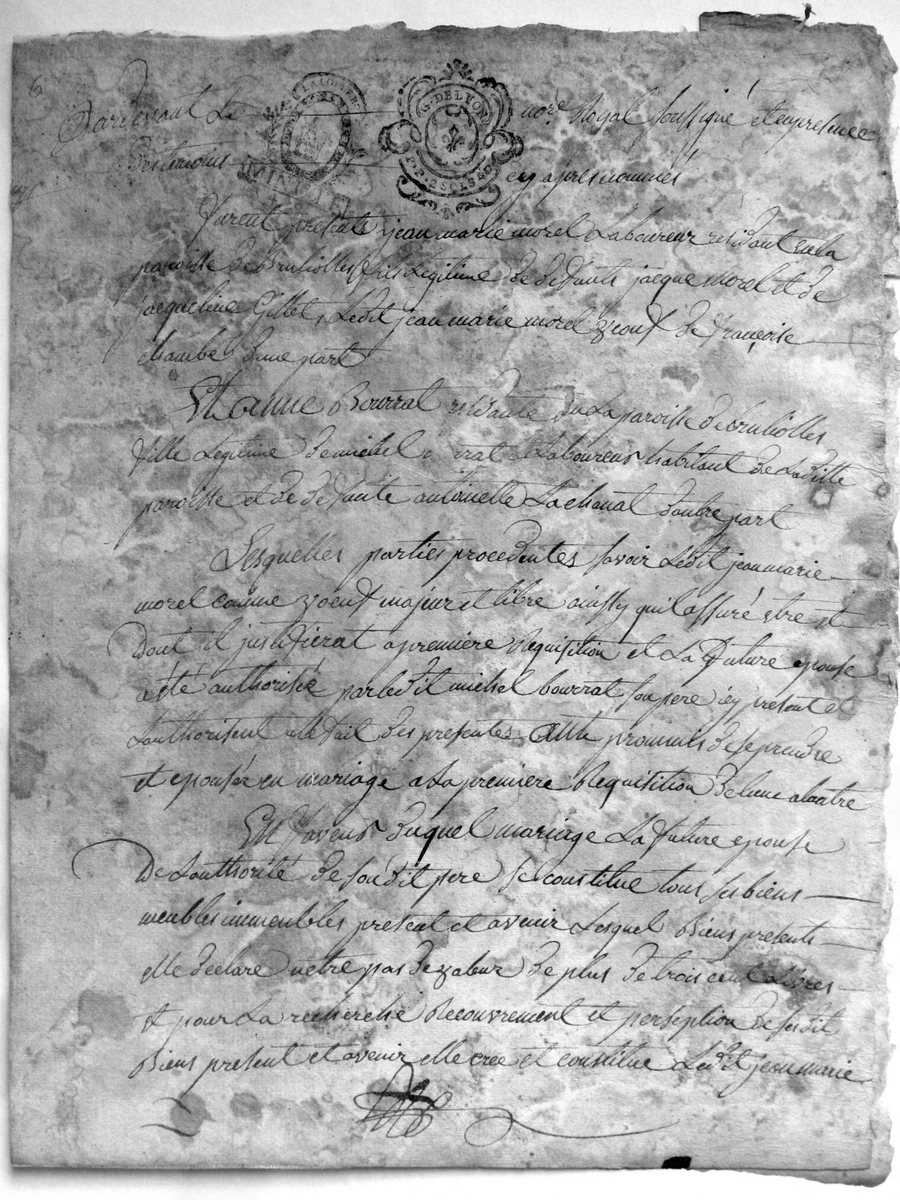 Pardevant Le not.e Royal soussigné et en presence
Des temoins cy apres nommés
G. DE LYON
furent presents jean marie morel Laboureur residant en la
paroisse de Brullioles fils Legitime de deffunts jacque morel et de
jacqueline Gillet, Ledit jeanmarie morel veouf de françoise
chambe dune part
Et anne Bourrat residante en La paroisse de brullioles
fille Legitime de michel Laboureur habitant de Laditte
paroisse et de deffunte antoinette Lachanat dautre part
Lesquelles parties procedentes savoir Ledit jeanmarie
morel comme veouf majeur et libre ainssy quil assure etre et
dont il justifierat a premiere Requisition et La future epouse
a été authorisée par ledit michel bourrat son pere icy present et
Lauthorisent a leffait des presentes ont promis de se prendre
et epouser en mariage a La premiere Requisition de lune a lautre
En faveur duquel mariage La future epouse
De Lauthorité de sondit pere se constitue tous ses biens
meubles immeubles present et avenir Lesquel Biens presents
elle declare netre pas de valeur de plus de trois cent Livres
et pour La recherche Recouvrement et perseption de sesdit
Biens present et avenir elle cree et constitue Ledit jeanmarie